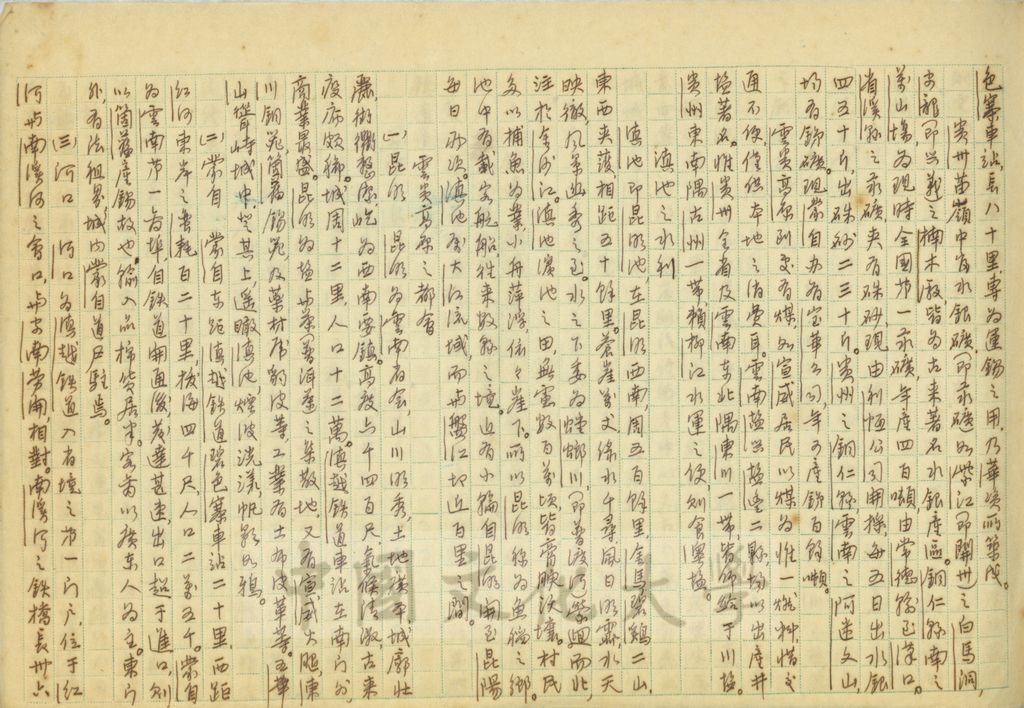 色寨車站,長八十里,專為運錫之用,乃華資所築成。
貴州苗嶺中有水銀礦,即汞礦,如紫江即開州之白馬洞,
即興義之楠木廠,皆為古來著名水銀產區。銅仁縣南之
萬山場,為現時全國第一汞礦,年產四百噸,由常德輸至漢口。
省溪縣之汞礦夾有硃砂,現由利恒公司開採,每五日出水銀
四五十斤,出硃砂二三十斤。貴州之銅仁縣,雲南之阿迷文山,
均有銻礦。現蒙自办有宝華公司年可產銻百餘噸。
雲貴高原到處有煤,如宣威居民以煤為惟一燃料,惜交
通不便,僅供本地之消費耳。雲南鹽興鹽豐二縣,均以出產井
鹽著名。惟貴州全省及雲南東北隅東川一帶,皆仰給于川鹽,
貴州東南隅古州一帶賴柳江水運之便,則食粵鹽。
滇池之水利
滇池即昆明池,在昆明西南,周五百餘里,金馬碧雞二山,
東西夾護,相距五十餘里。蒼崖萬丈,綠水千尋,風日明霽,水天
映徹,風景幽秀之至。水之下委為螳螂川,即普渡河,縈迴而北,
注於金沙江。滇池濱池之田無慮數百萬頃,皆膏腴沃壤。村民
多以捕魚為業,小舟萍浮,依々崖下。所以昆明稱為魚稻之鄉。
池中有載客帆船,往來數縣之境。近有小輪自昆明南至昆陽,
每日兩次。滇池屬大江流域,而與盤江切近百里之間。
雲貴高原之都會
(一)昆明 昆明為雲南省会,山川明秀,土地漢平,城廓壯
麗,街衢整潔,屹為西南雲鎮。高度六千四百尺,氣候清淑,古來
疫病頗稀。城周十二里,人口十二萬。滇越鐵道車站在南門外,
商業最盛。昆明為鹽与茶普洱產之集散地,又有宣威火腿,東
川銅,箇舊錫,及藥材虎豹皮等。工業有土布皮革等。五華
山聳峙城中,登其上,遙瞰滇池,煙波浩漾,帆影如鴉。
(二)蒙自 蒙自東距滇越鐵道碧色寨車站二十里,西距
紅河東岸之蠻耗百二十里,拔海四千尺,人口二萬五千。蒙自
為雲南第一商埠,自鐵道開通後,發達甚速,出口超于進口,則
以箇舊產錫故也。輸入品棉貨居半,客商以廣東人為主。東門
外,有法租界,城內蒙自道尹駐焉。
(三)河口 河口為滇越鐵道入省境之第一門戶,位于紅
河与南溪河之會口,与安南勞開相對。南溪河之鐵橋長卅六
中國文化大學